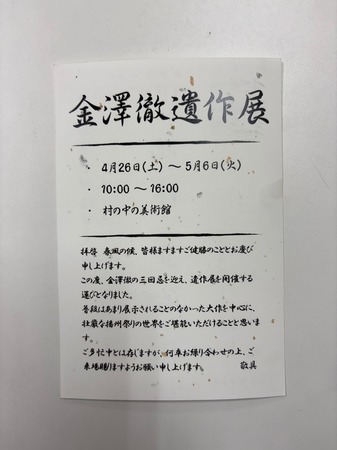 金澤徹遺作展
・ 4月26日(土) ～ 5月6日(火)
・ 10:00 ～ 16:00
・ 村の中の美術館
拝啓 春風の候、皆様ますますご健勝のこととお慶び
申し上げます。
この度、金澤徹の三回忌を迎え、遺作展を開催する
運びとなりました。
普段はあまり展示されることのなかった大作を中心に、
壮厳な播州祭りの世界をご堪能いただけることと思いま
す。
ご多忙中とは存じますが、何卒お繰り合わせの上、ご
来場賜りますようお願い申し上げます。 敬具